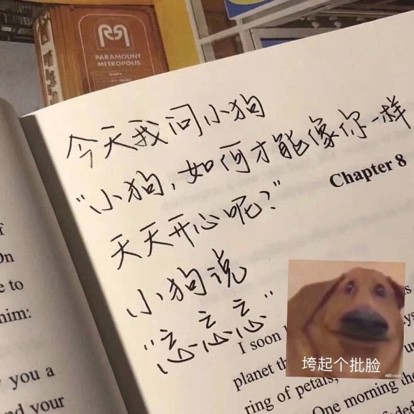 PARAMOUNT
METROPOLIS
今天我问小狗
"小狗，如何才能像你一样
天天开心呢？"
小狗说
"忘忘忘"
Chapter 8
I soon
planet
ring of petals,
One morning the
On
to
him:
you a
your
垮起个批脸